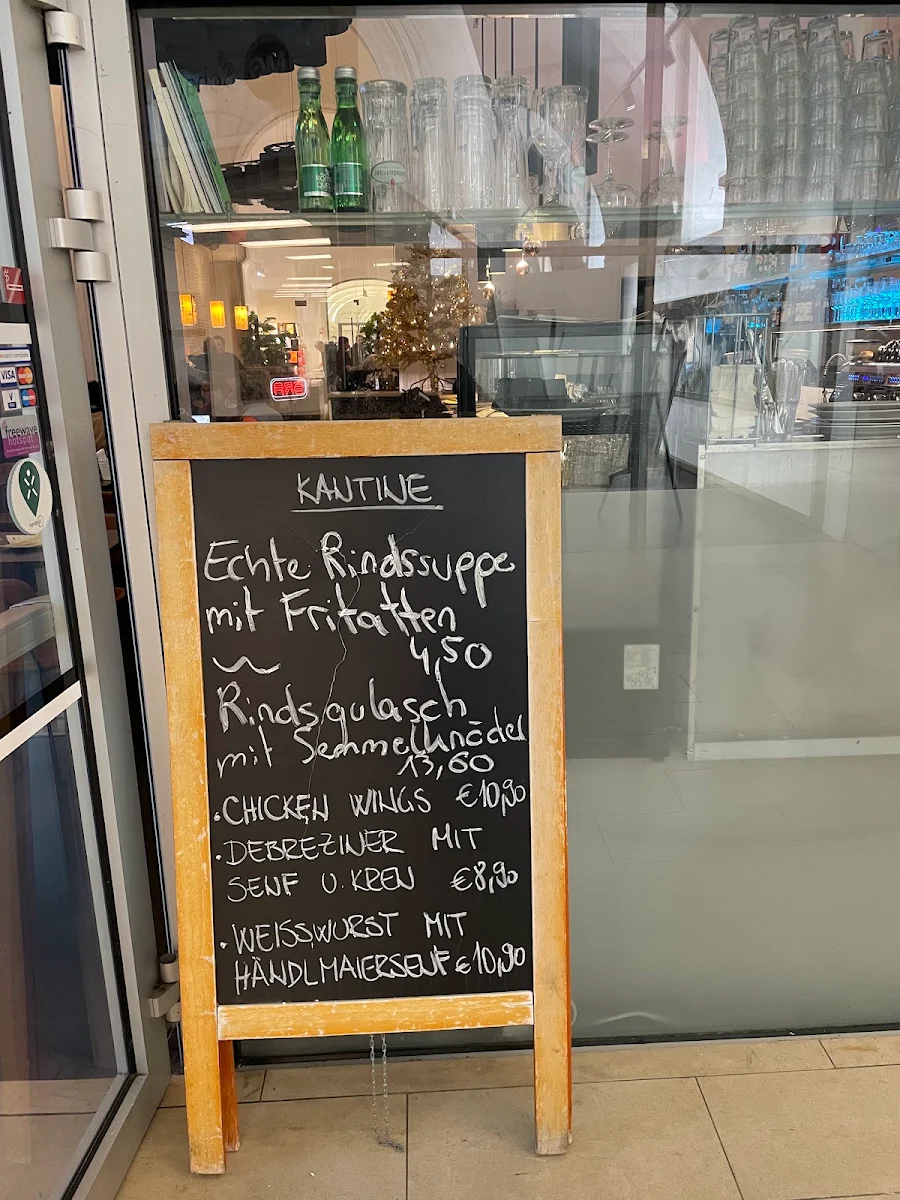 RÖMER
QUELLE
BAR
VISA
freewave
hotspot
KANTINE
Echte Rindssuppe
mit Fritatten
4,50
~
Rindsgulasch
mit Semmelknödel
13,60
·CHICKEN WINGS €10,90
·DEBREZINER MIT
SENF U. KREN €8,90
·WEISSWURST MIT
HÄNDLMAIERSENF €10,90